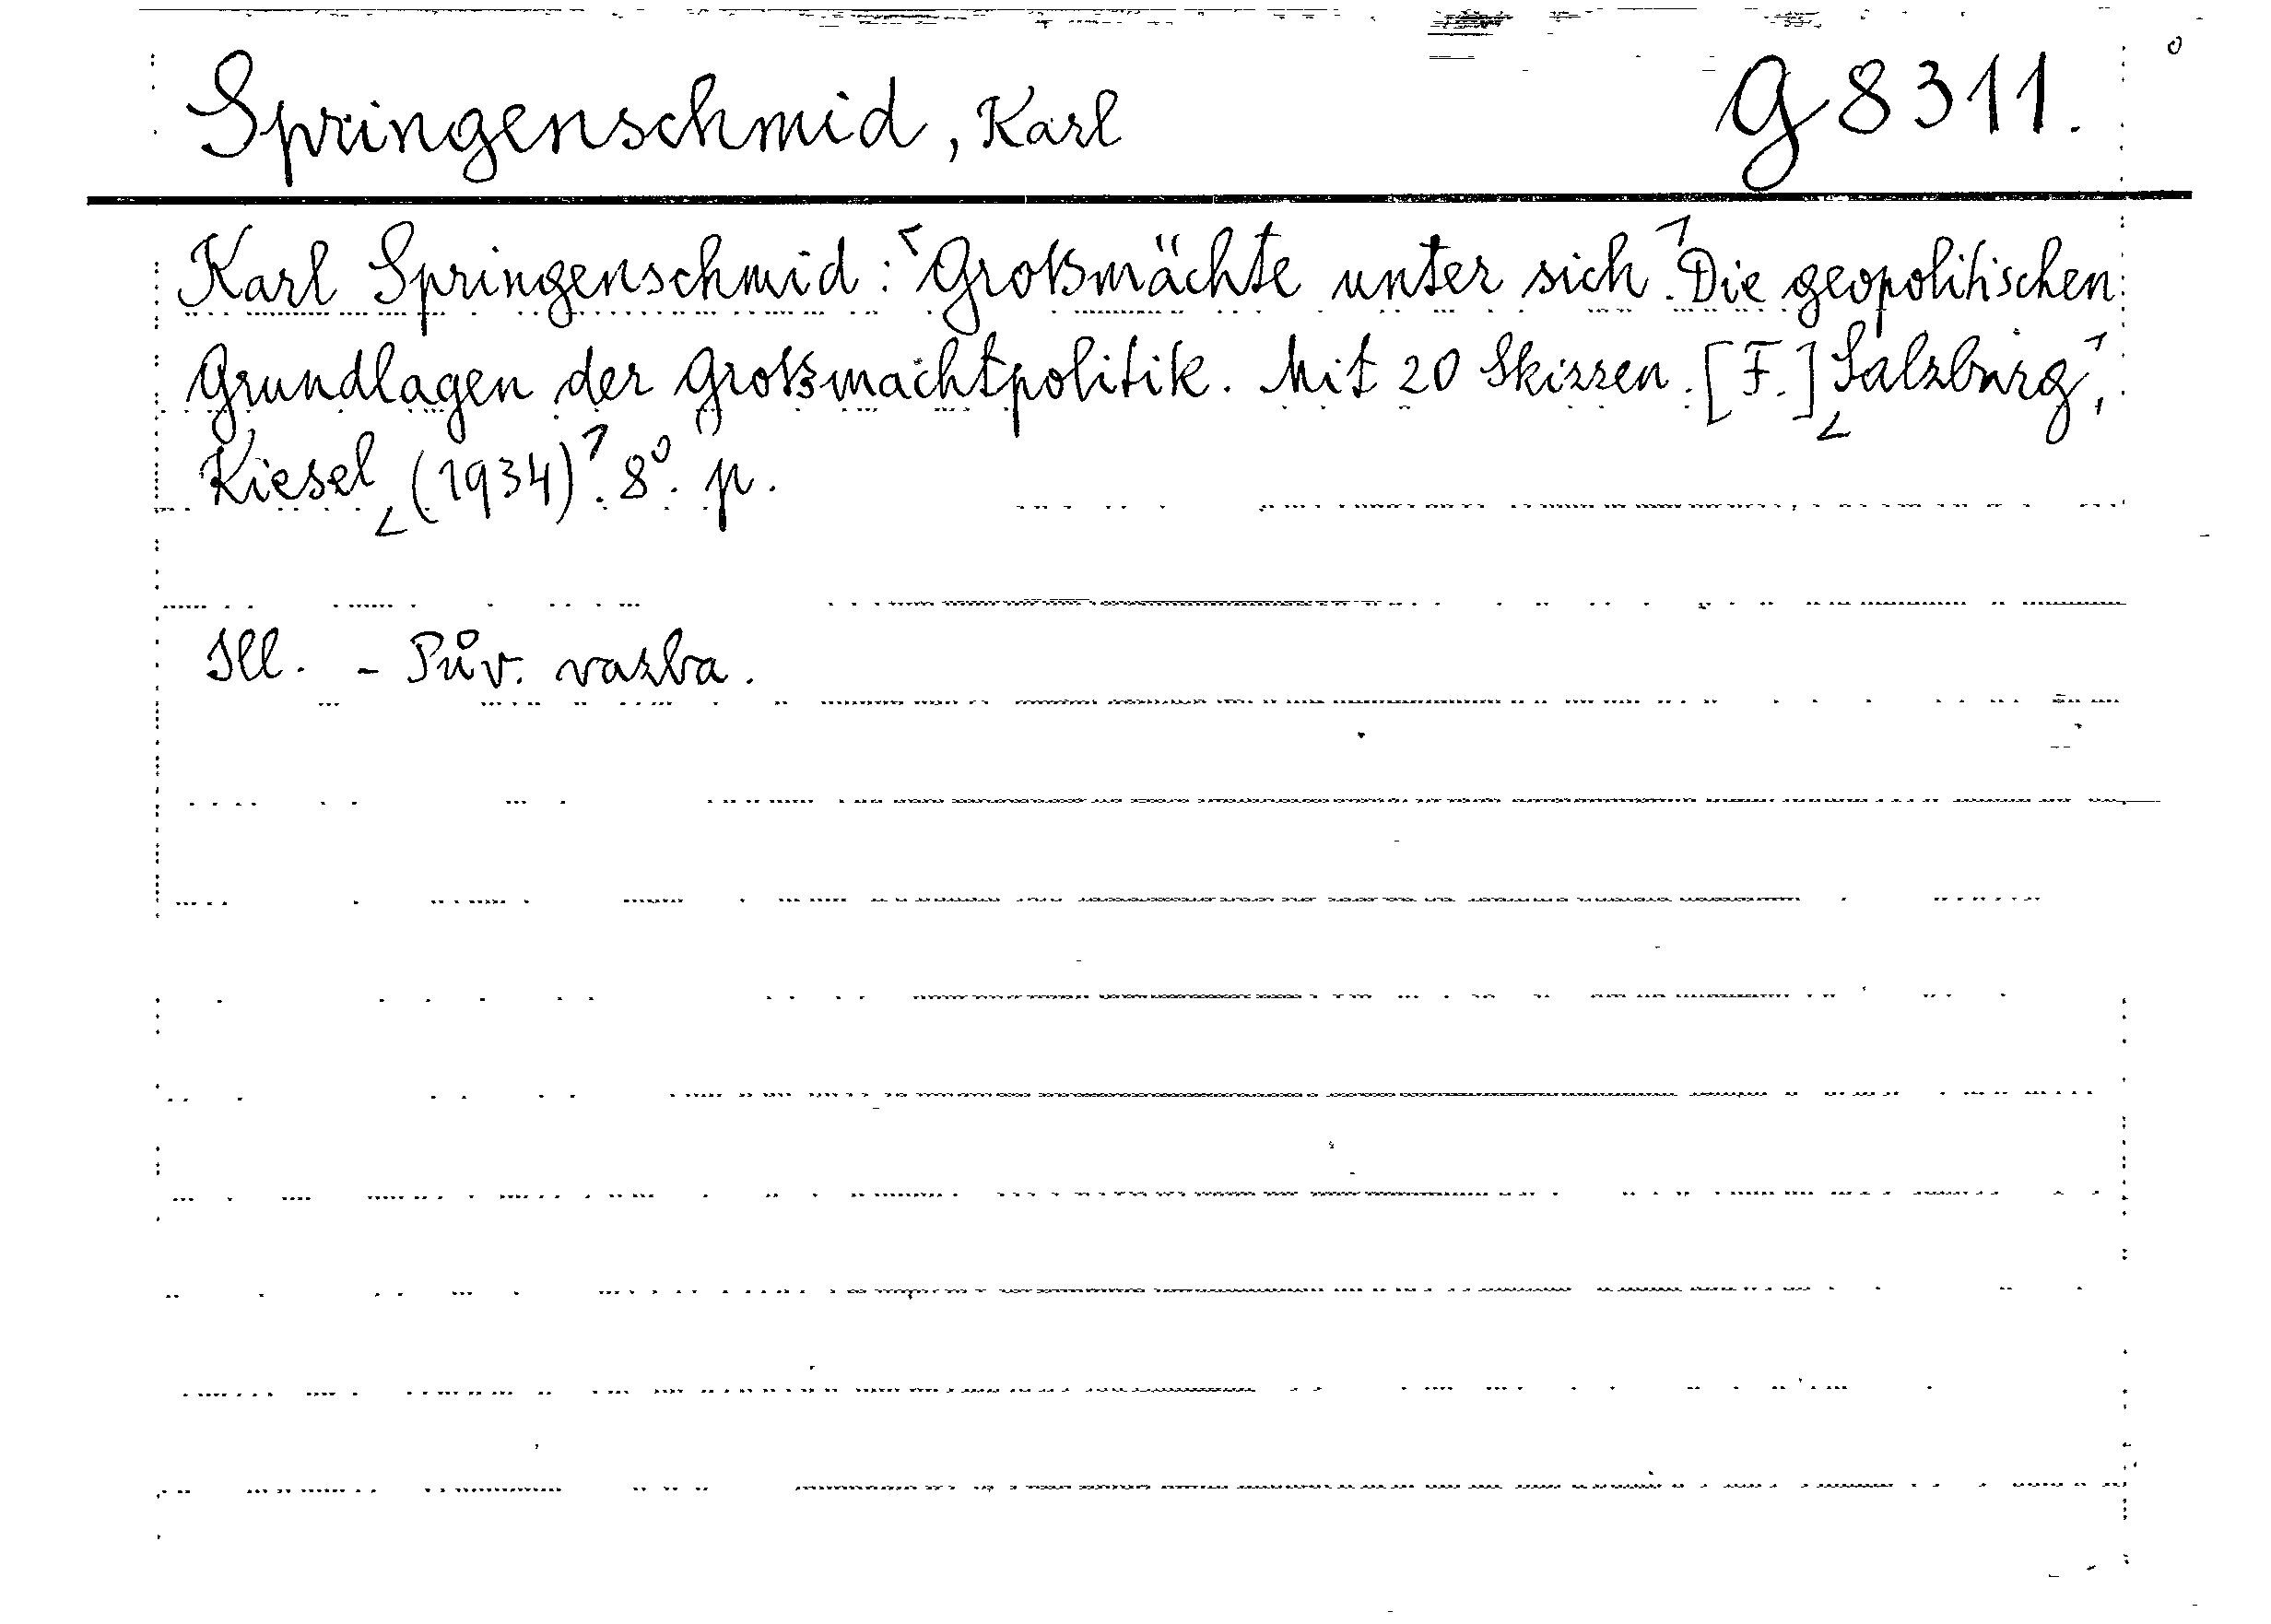 Springenschmid, Karl G 8311.
Karl Springenschmid: Großmächte unter sich. Die geopolitischen
Grundlagen der Großmachtpolitik. Mit 20 Skizzen. [F.] Salzburg,
Kiesel (1934). 8°. p.
Ill. - Pův. vazba.